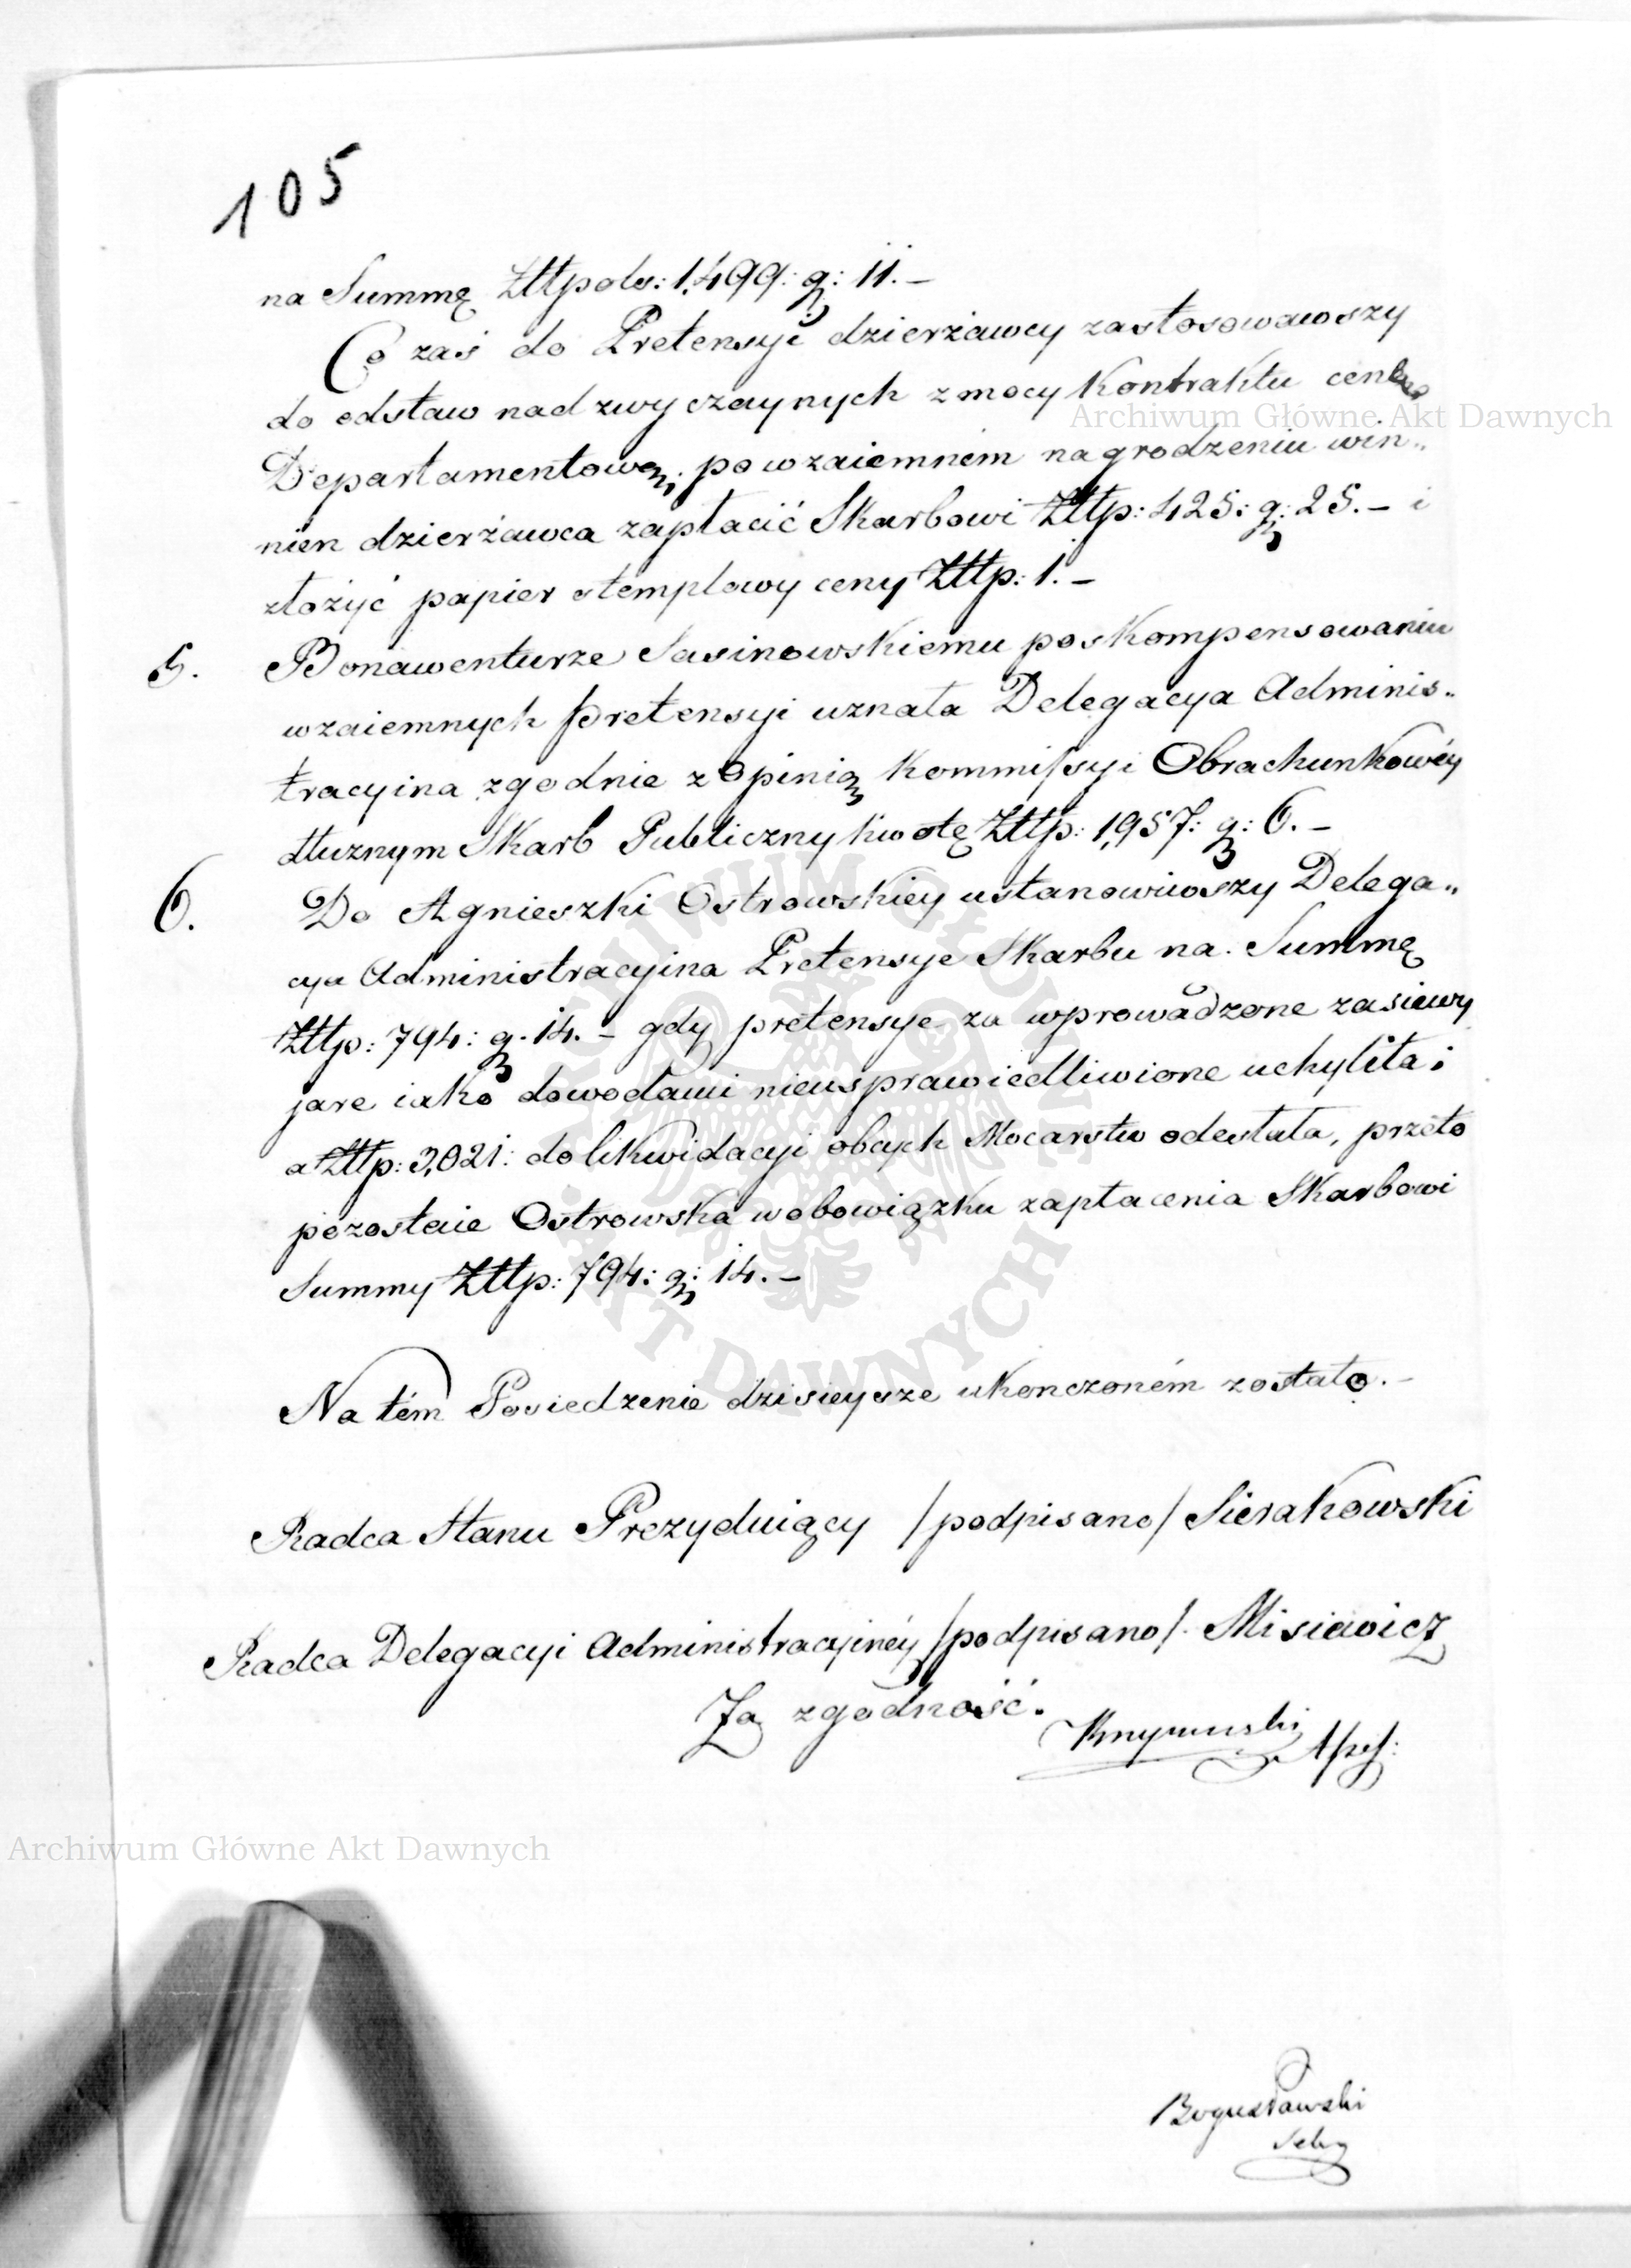 105
na Summę Złłpols: 1,499: g: 11.–
Co zaś do Pretensyi dzierżawcy zastosowawszy
do odstaw nadzwyczaynych z mocy Kontraktu
Departamentową, po wzaiemném nagrodzeniu win„
nien dzierżawca zapłacić Skarbowi Złłp: 425: g: 25.– i
złożyć papier stemplowy ceny Złłp: 1.–
5. Bonawenturze Sasinowskiemu po skompensowaniu
wzaiemnych pretensyi uznała Delegacya Adminis„
tracyina zgodnie z Opinią Kommissyi Obrachunkowéy
dłużnym Skarb Publiczny kwotę Złłp: 1,957: g: 6.–
6. Do Agnieszki Ostrowskiey ustanowiwszy Delega„
cya Administracyina Pretensye Skarbu na Summę
Złłp: 794: g: 14.– gdy pretensye za wprowadzone zasiewy
jare iako dowodami nieusprawiedliwione uchyliła i
a Złłp: 3,021: do likwidacyi obcych Mocarstw odesłała, przeto
pozostaie Ostrowska w obowiązku zapłacenia Skarbowi
Summy Złłp: 794: g: 14.–
Na tém Posiedzenie dzisieysze ukonczoném zostało.–
Radca Stanu Prezyduiący /podpisano/ Sierakowski
Radca Delegacyi Administracyinéy /podpisano/ Misiewicz
Za zgodność.
Bogusławski
Archiwum Główne Akt Dawnych
Archiwum Główne Akt Dawnych
ARCHIWUM GŁÓWNE AKT DAWNYCH